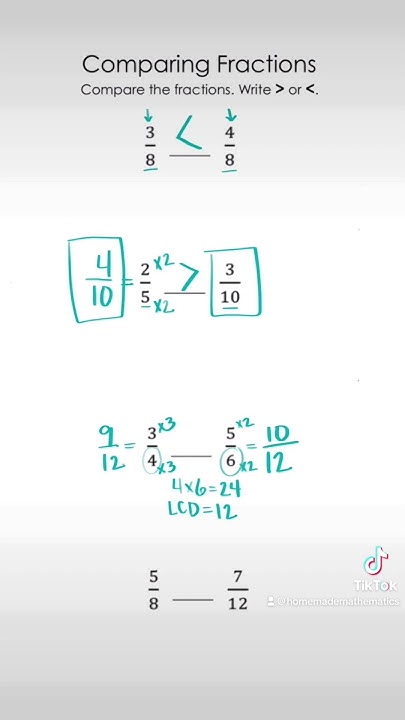 Comparing Fractions
Compare the fractions. Write > or <.
↓ ↓
3/8 < 4/8
4/10 = 2/5 ×2 ×2 > 3/10
9/12 = 3/4 ×3 ×3 ___ 5/6 ×2 ×2 = 10/12
4×6=24
LCD=12
5/8 ___ 7/12
TikTok
@homemademathematics